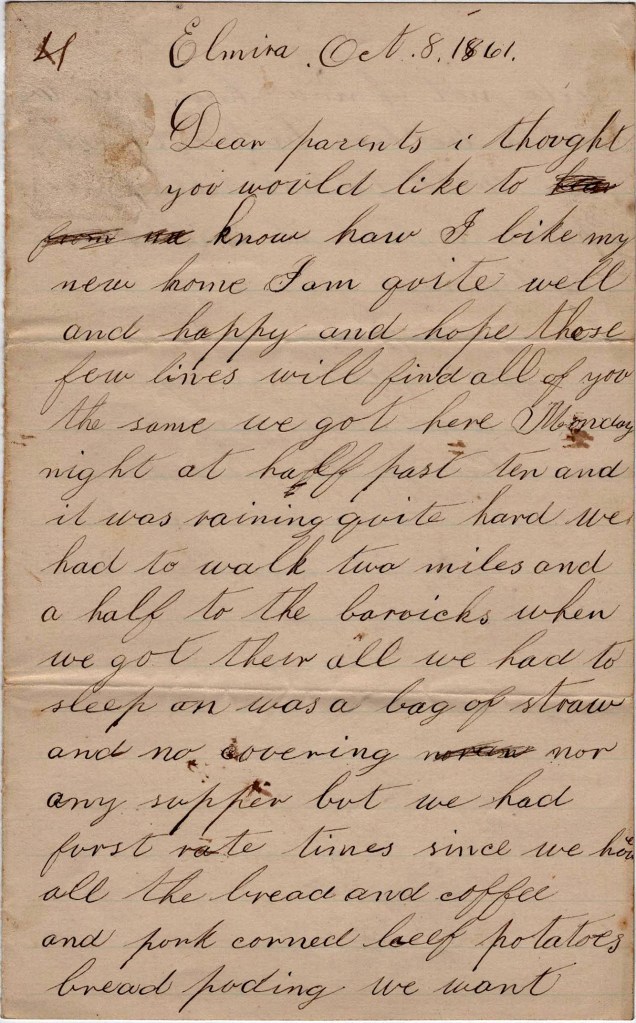 4
Elmira. Oct. 8. 1861.
Dear parents i thought
you would like to hear
from me know haw I like my
new home I am quite well
and happy and hope these
few lines will find all of you
the same we got here Monday
night at half past ten and
it was raining quite hard we
had to walk two miles and
a half to the barricks when
we got their all we had to
sleep on was a bag of straw
and no covering nor
any supper but we had
furst rate times since we have
all the bread and coffee
and pork corned beef potatoes
bread puding we want